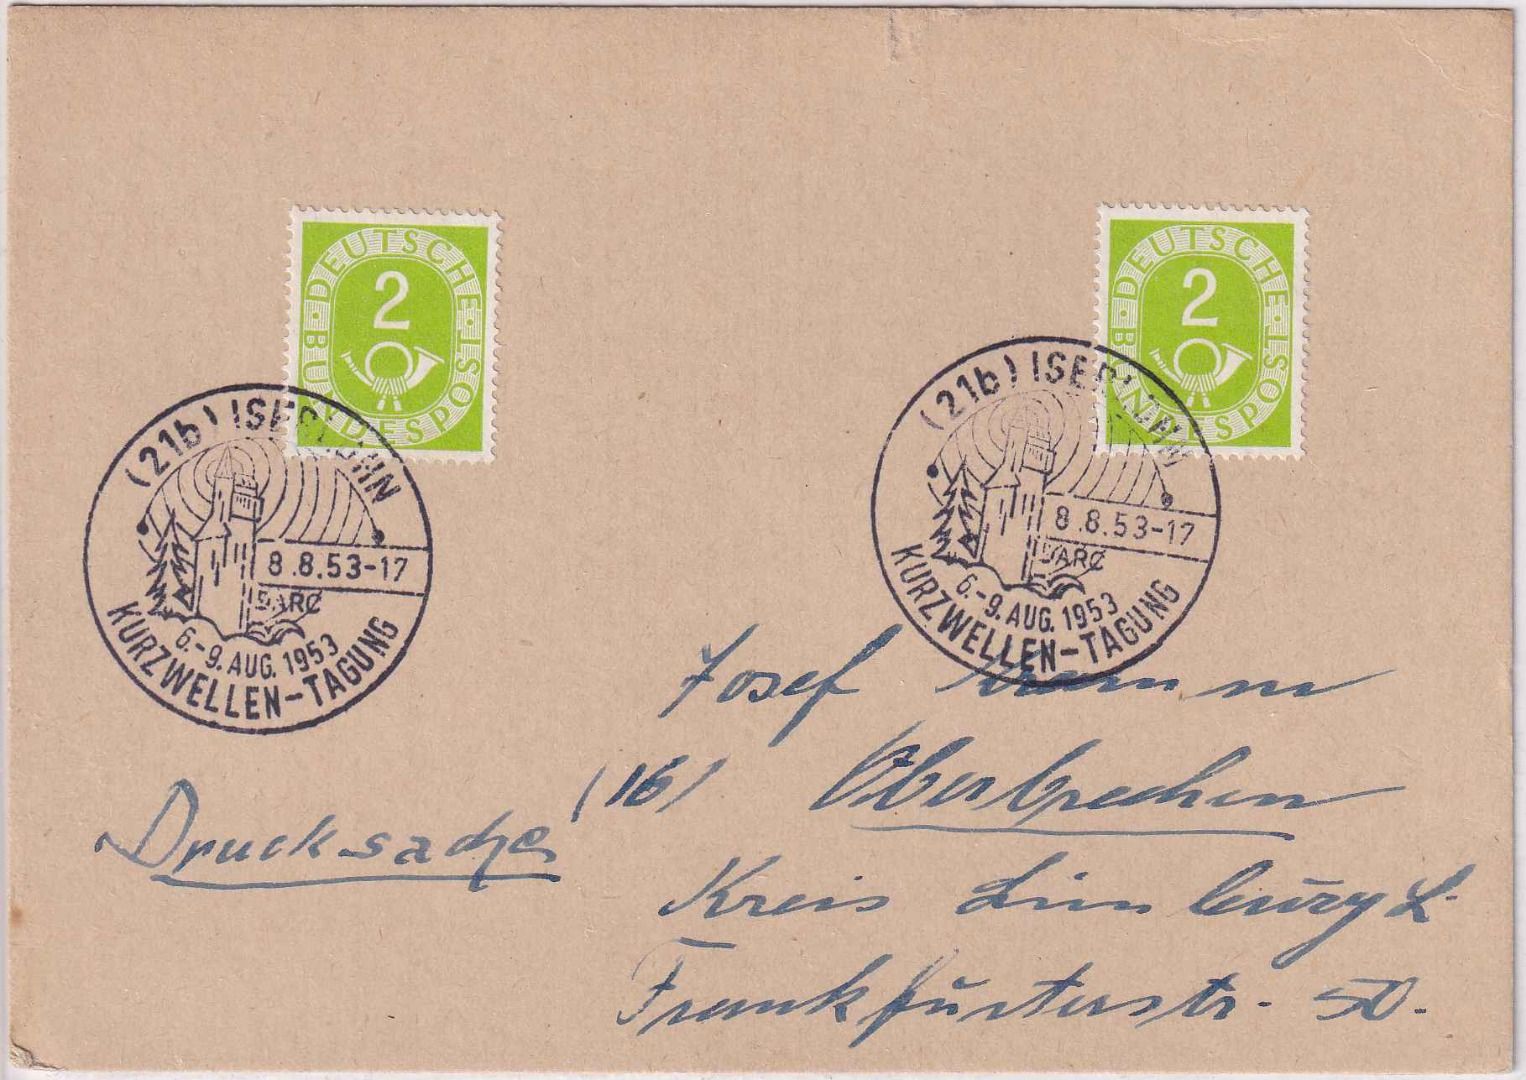 DEUTSCHE BUNDESPOST
2
DEUTSCHE BUNDESPOST
2
(21b) ISERLOHN
8.8.53-17
DARC
6.-9. AUG. 1953
KURZWELLEN-TAGUNG
(21b) ISERLOHN
8.8.53-17
DARC
6.-9. AUG. 1953
KURZWELLEN-TAGUNG
Drucksache
Josef
(16) Oberbrechen
Kreis Limburg L.
Frankfurterstr. 50.